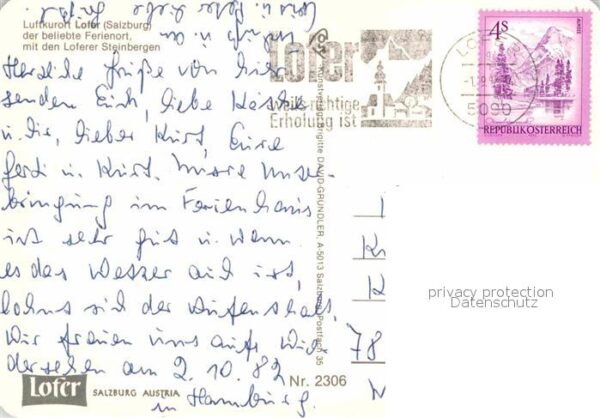 Luftkurort Lofer (Salzburg)
der beliebte Ferienort,
mit den Loferer Steinbergen
Herzliche Grüße von hier
senden Euch, liebe
u. dir, lieber Kurt, Eure
Gerti u. Kurt. Unsere Unter-
bringung im Ferienhaus
ist sehr gut u. wenn
es das Wetter auch ist,
lohnt sich der Aufenthalt.
Wir freuen uns aufs Wie-
dersehen am 2.10.82
in Hamburg.
Lofer
SALZBURG AUSTRIA
Nr. 2306
Kunstverlag Brigitte DAVID-GRÜNDLER, A-5013 Salzburg, Postfach 35
Lofer
Erholung ist
5090
4S
REPUBLIK ÖSTERREICH
K
78
privacy protection
Datenschutz